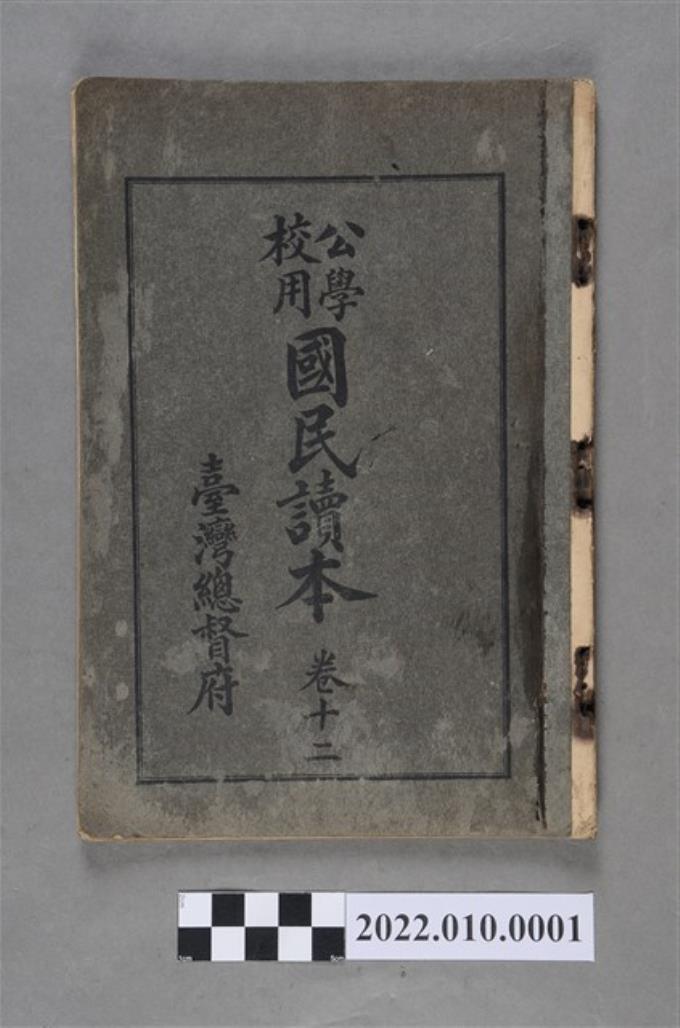 公學
校用
國民讀本 卷十二
臺灣總督府
2022.010.0001